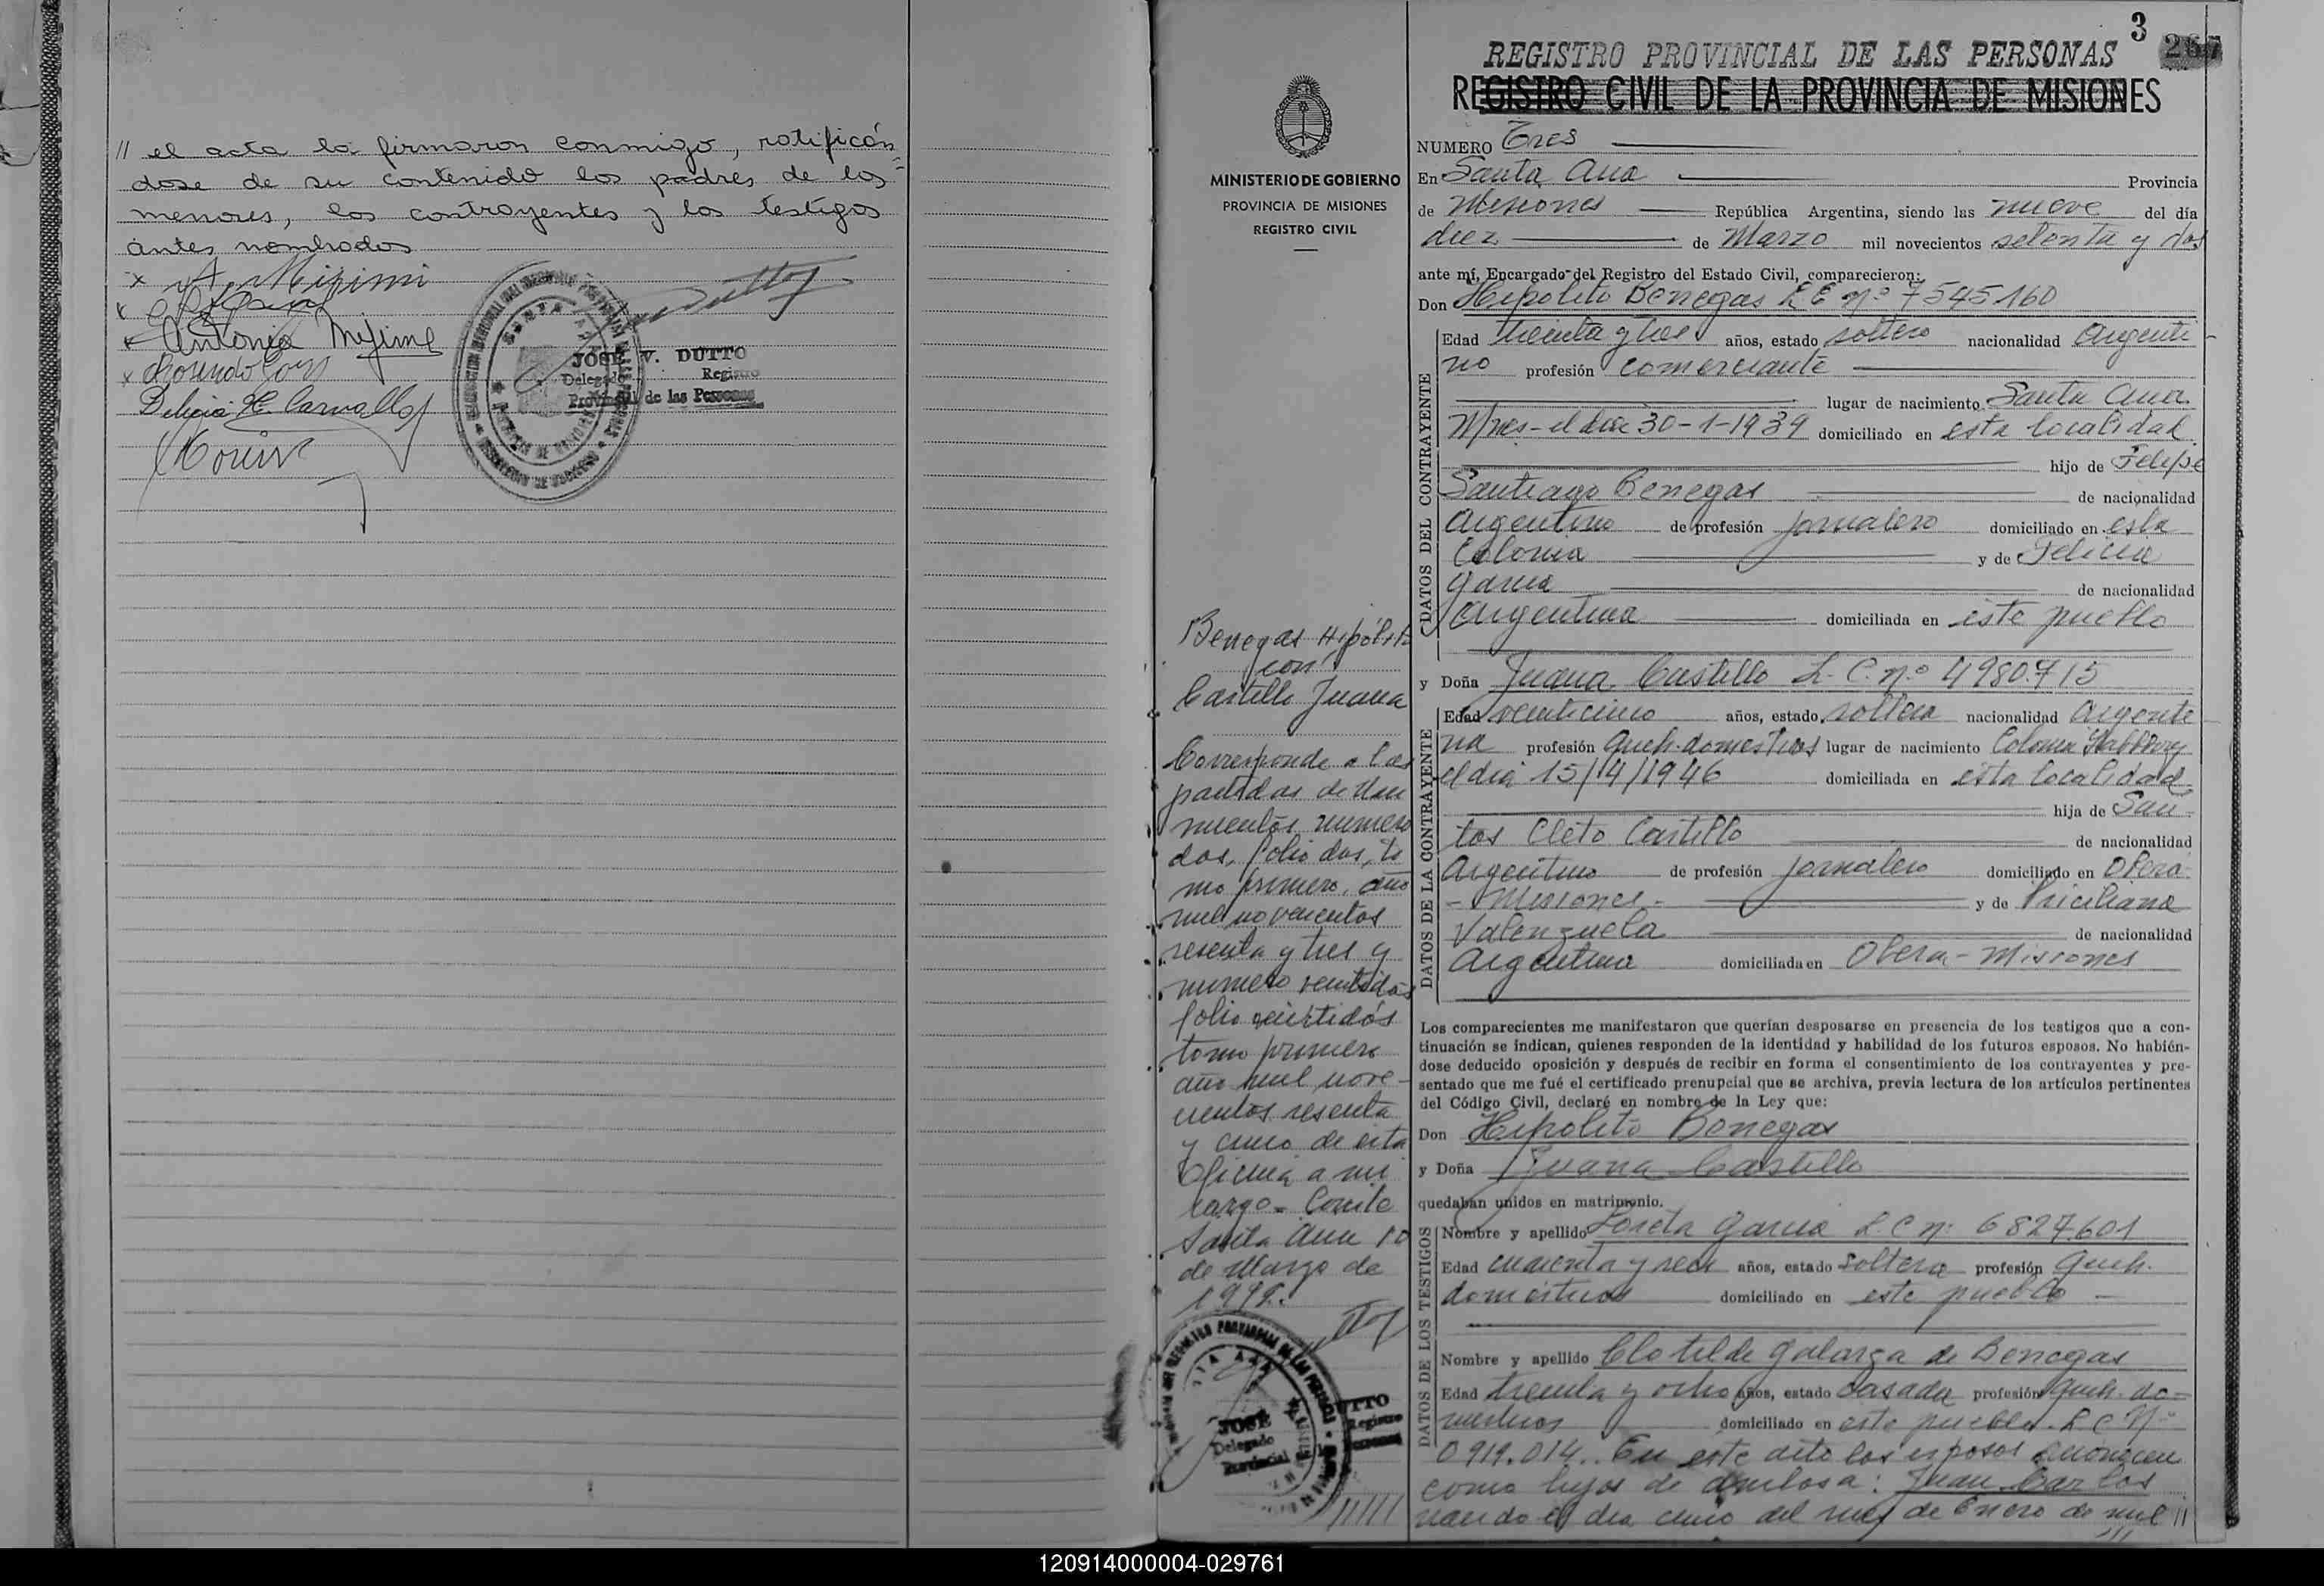 // el acta la firmaron conmigo, ratificán
dose de su contenido los padres de los
menores, los contrayentes y los testigos
antes nombrados
Antonia
JOSÉ V. DUTTO
Delegado Registro
Provincial de las Personas
3
267
REGISTRO PROVINCIAL DE LAS PERSONAS
REGISTRO CIVIL DE LA PROVINCIA DE MISIONES
MINISTERIO DE GOBIERNO
PROVINCIA DE MISIONES
REGISTRO CIVIL
Benegas Hipólito
con
Castillo Juana
Corresponde a las
partidas de naci
mientos numero
dos, folio dos, to
mo primero, año
mil novecientos
sesenta y tres y
numero veintidós
folio veintidós
tomo primero
año mil nove-
cientos sesenta
y cinco de esta
Oficina a mi
cargo = Conste
Santa Ana 10
de Marzo de
JOSÉ
Delegado Registro
Provincial Personas
NUMERO Tres
En Santa Ana Provincia
de Misiones República Argentina, siendo las nueve del día
diez de Marzo mil novecientos setenta y dos
ante mí, Encargado del Registro del Estado Civil, comparecieron:
Don Hipolito Benegas L E nº 7545160
DATOS DEL CONTRAYENTE
Edad treinta y tres años, estado soltero nacionalidad Argenti-
no profesión comerciante
lugar de nacimiento Santa Ana
Mnes - el dia 30-1-1939 domiciliado en esta localidad
hijo de Felipe
Santiago Benegas de nacionalidad
Argentino de profesión jornalero domiciliado en esta
Colonia y de Felicia
Garcia de nacionalidad
Argentina domiciliada en este pueblo
y Doña Juana Castillo L. C. nº 4980.715
DATOS DE LA CONTRAYENTE
Edad veinticinco años, estado soltera nacionalidad Argenti
na profesión queh. domesticos lugar de nacimiento Colonia
el dia 15/4/1946 domiciliada en esta localidad
hija de San
tos Cleto Castillo de nacionalidad
Argentino de profesión jornalero domiciliado en Oberá
- Misiones - y de Priciliana
Valenzuela de nacionalidad
Argentina domiciliada en Obera - Misiones
Los comparecientes me manifestaron que querían desposarse en presencia de los testigos que a con-
tinuación se indican, quienes responden de la identidad y habilidad de los futuros esposos. No habién-
dose deducido oposición y después de recibir en forma el consentimiento de los contrayentes y pre-
sentado que me fué el certificado prenupcial que se archiva, previa lectura de los artículos pertinentes
del Código Civil, declaré en nombre de la Ley que:
Don Hipolito Benegas
y Doña Juana Castillo
quedaban unidos en matrimonio.
DATOS DE LOS TESTIGOS
Nombre y apellido Loreta Garcia L. C nº 6827.601
Edad cuarenta y seis años, estado soltera profesión queh.
domésticos domiciliado en este pueblo
Nombre y apellido Clotilde Galarza de Benegas
Edad treinta y ocho años, estado casada profesión queh. do=
mesticos domiciliado en este pueblo. L C Nº
0919.014. En este acto los esposos reconocen
como hijos de ambos a: Juan Carlos
nacido el dia cinco del mes de Enero de mil //
120914000004-029761